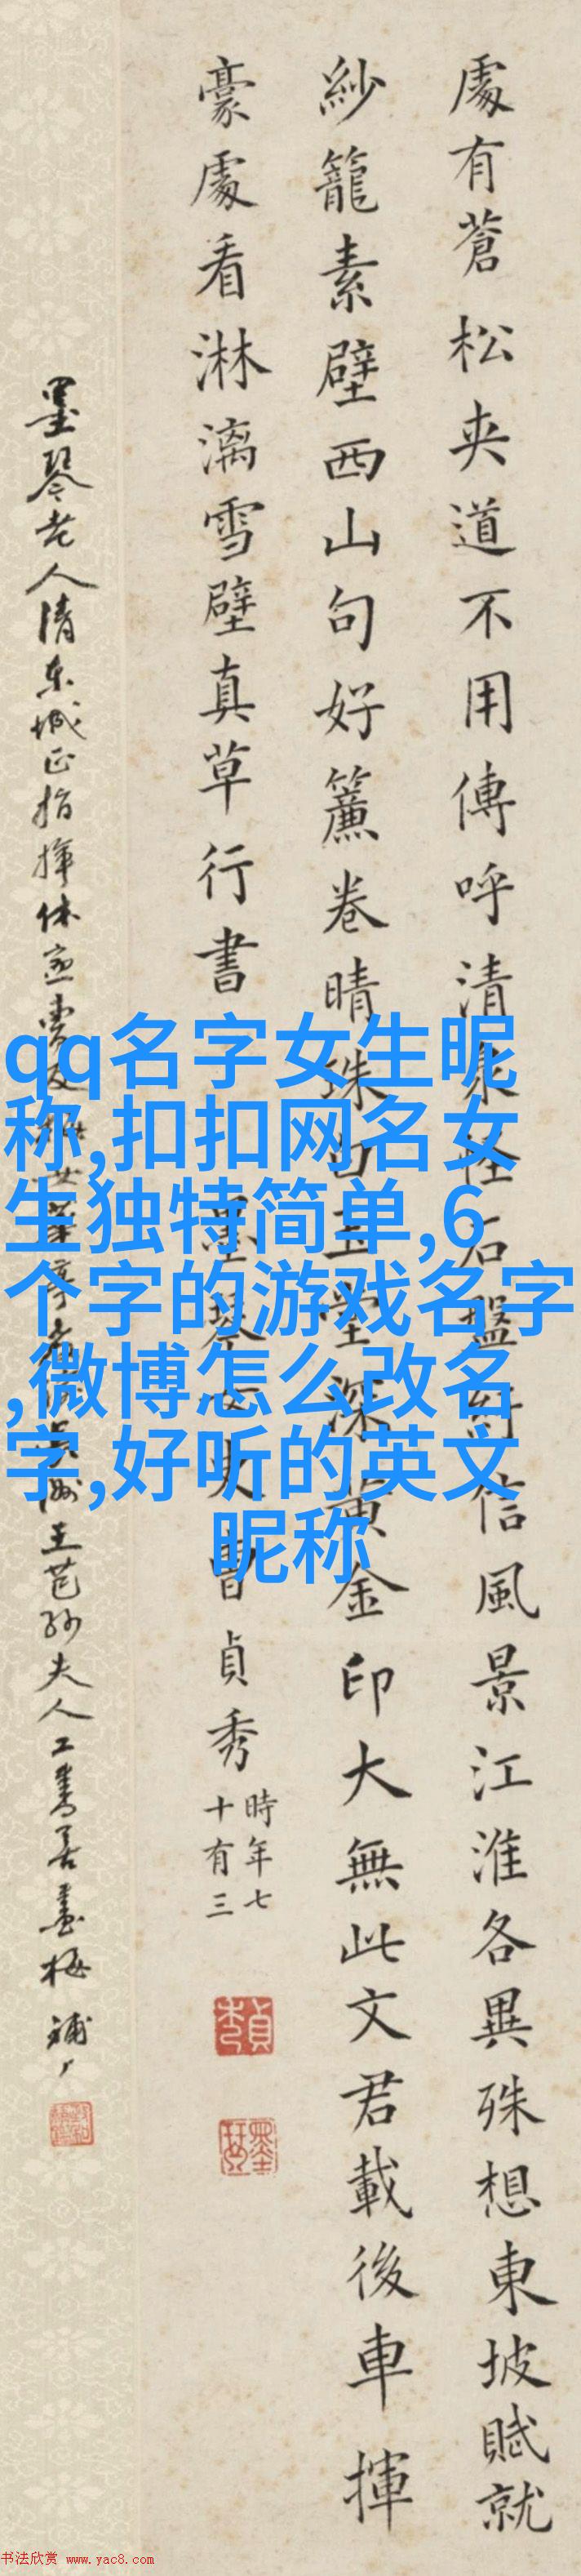 處有蒼松夾道不用傳呼清泉怪石盤紆信風景江淮各異殊想東坡賦就
紗籠素壁西山句好簾卷晴珠白玉堂深黃金印大無此文君載後車揮
豪處看淋漓雪壁真草行書
墨琴女史曹貞秀
時年七
十有三
墨琴老人清東城正指揮
王芑孫夫人工書善畫梅
qq名字女生昵
称,扣扣网名女
生独特简单,6
个字的游戏名字
,微博怎么改名
字,好听的英文
昵称
书法欣赏 www.yac8.com